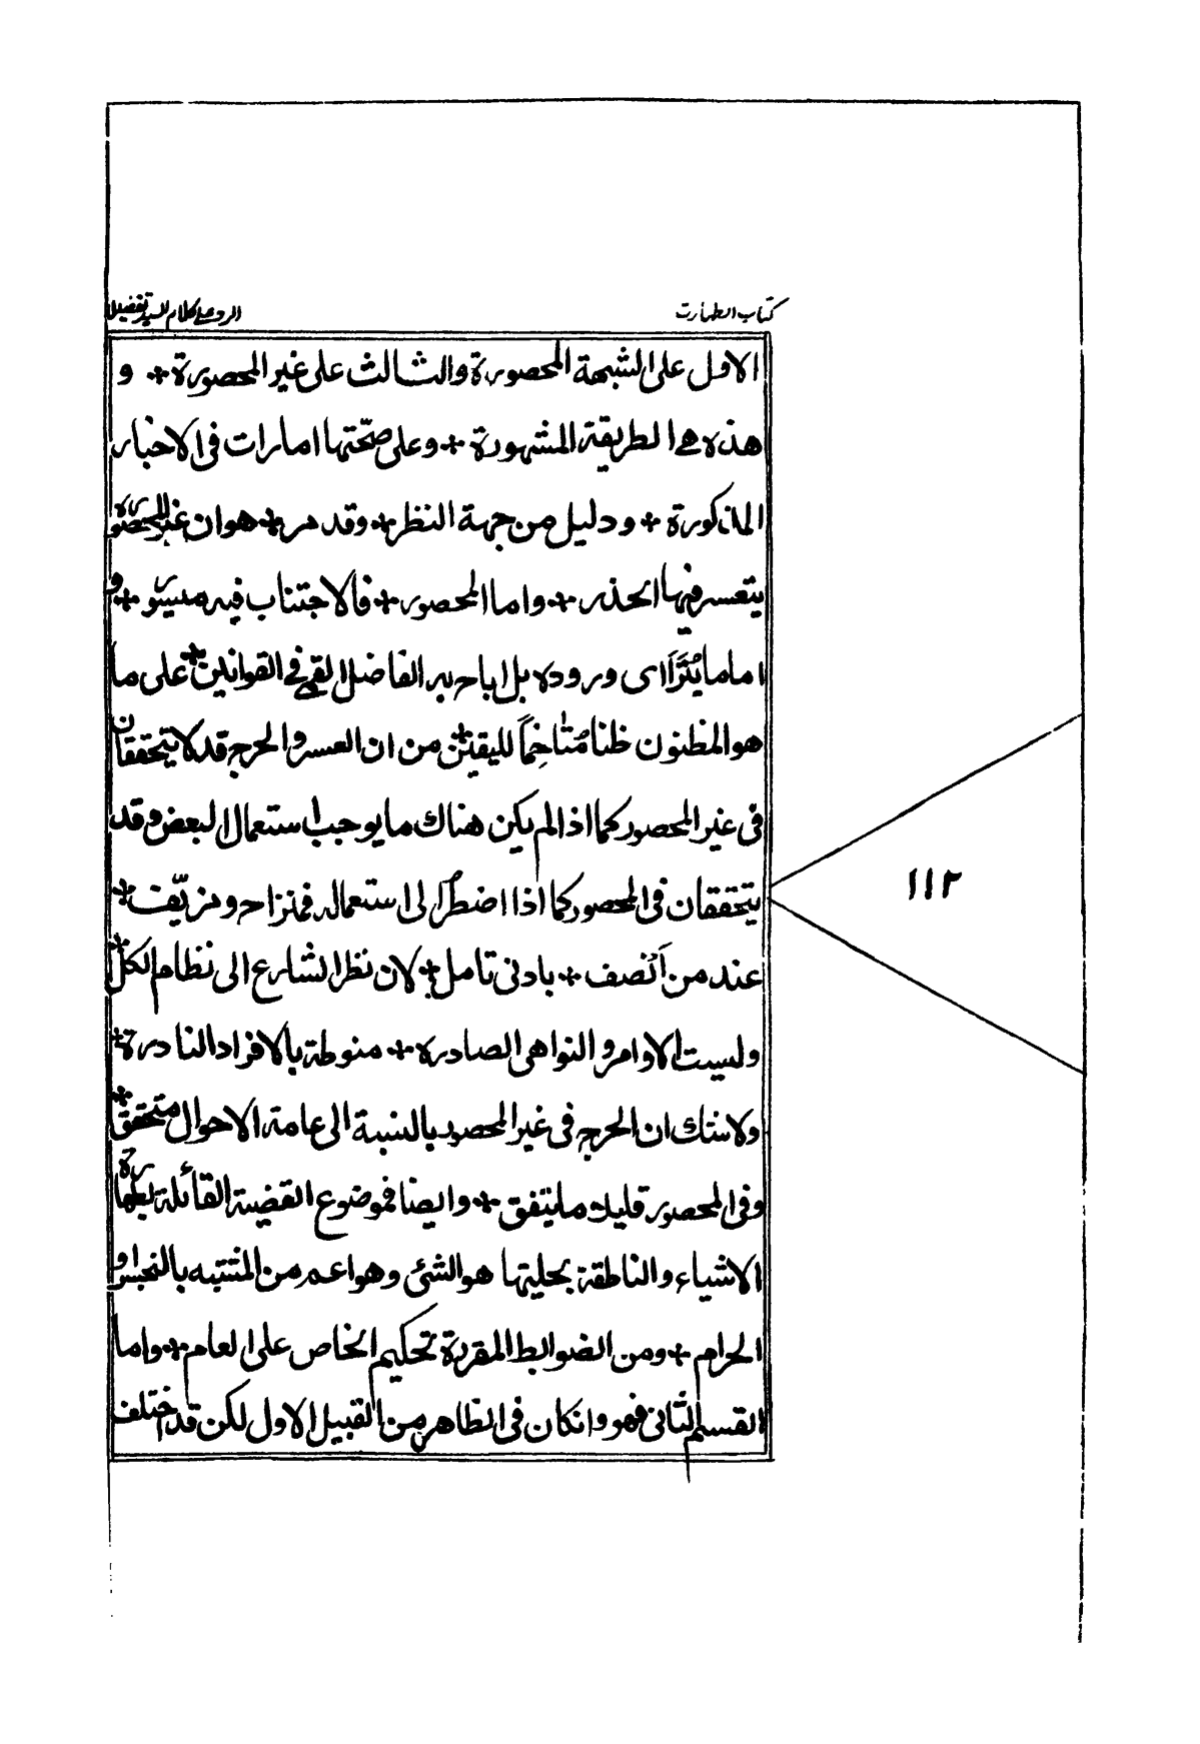 كتاب الطهارت
الرد على كلام السيد تفضيل
الاول على الشبهة المحصورة والثالث على غير المحصورة + و
هذه هي الطريقة المشهورة + وعلى صحّتها امارات فى الاخبار
المذكورة + ودليل من جهة النظر + وقد مر + هو ان غير المحصورة
يتعسر فيها الحذر + واما المحصور + فالاجتناب فيه ميسور + و
اما ما يُتَرَاأى وروده بل اباح به الفاضل القمي في القوانين + على ما
هو المظنون ظنا مُتاخِمًا لليقين + من ان العسر والحرج قد لا يتحققان
فى غير المحصور كما اذا لم يكن هناك ما يوجب استعمال البعض وقد
يتحققان فى المحصور كما اذا اضطر الى استعماله فمنزاح ومزيّف +
عند من اَنصف + بادنى تامل + لان نظر الشارع الى نظام الكل +
وليست الاوامر والنواهى الصادرة + منوطة بالافراد النادرة +
ولا شك ان الحرج فى غير المحصور بالنسبة الى عامة الاحوال متحقق +
وفى المحصور قليلا ما يتفق + وايضا فموضوع القضية القائلة بطهارة
الاشياء والناطقة بحليتها هو الشئ وهو اعم من المشتبه بالنجس او
الحرام + ومن الضوابط المقررة تحكيم الخاص على العام + واما
القسم الثانى فهو وانكان فى الظاهر من القبيل الاول لكن قد اختلف
١١٢